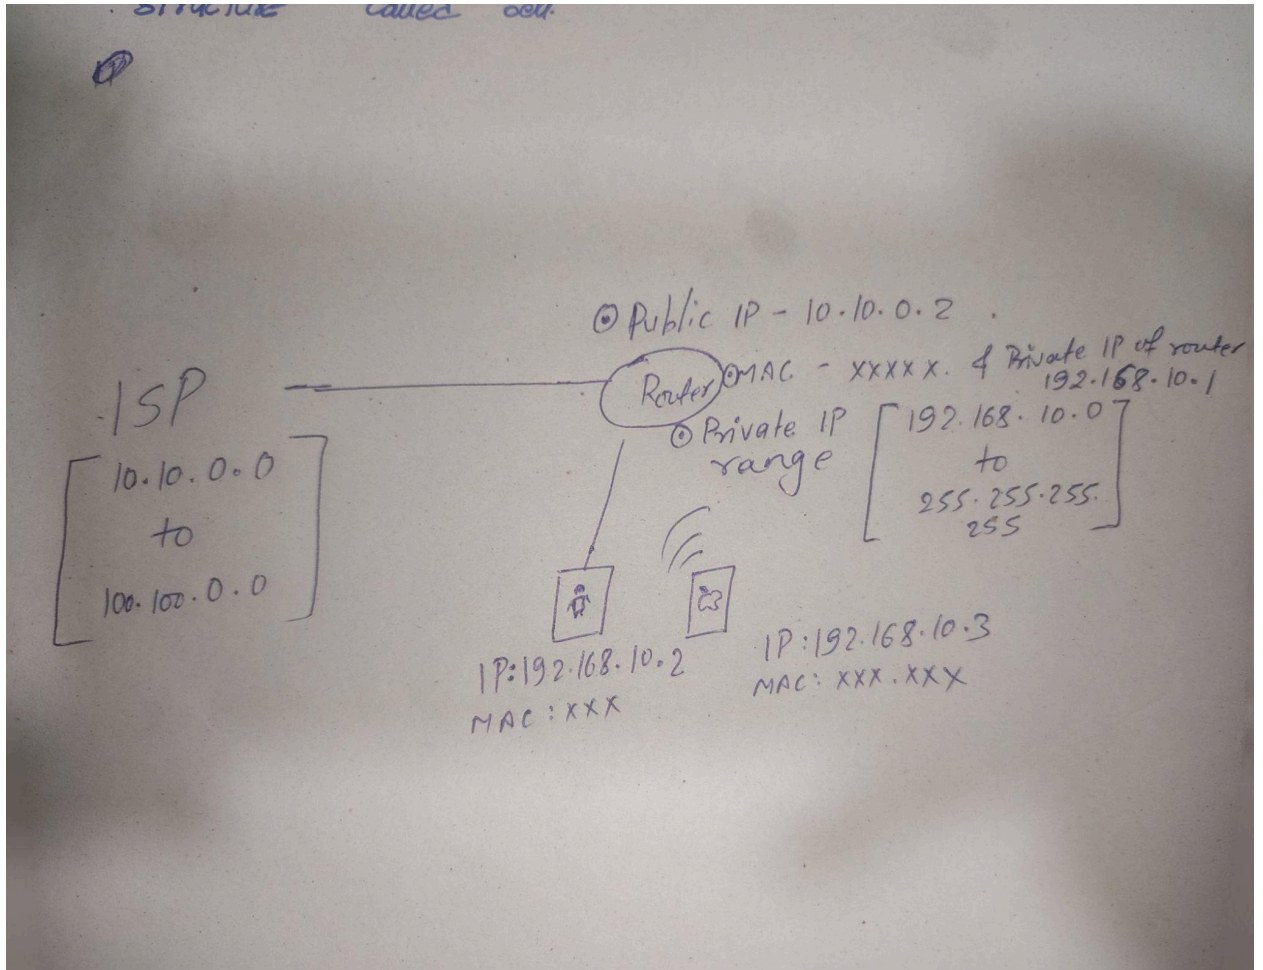 structure called
Public IP - 10.10.0.2
ISP
Router
MAC - xxxxx. & Private IP of router
192.168.10.1
Private IP
range
192.168.10.0
to
255.255.255.
255
10.10.0.0
to
100.100.0.0
IP:192.168.10.2
MAC:XXX
IP:192.168.10.3
MAC: XXX.XXX